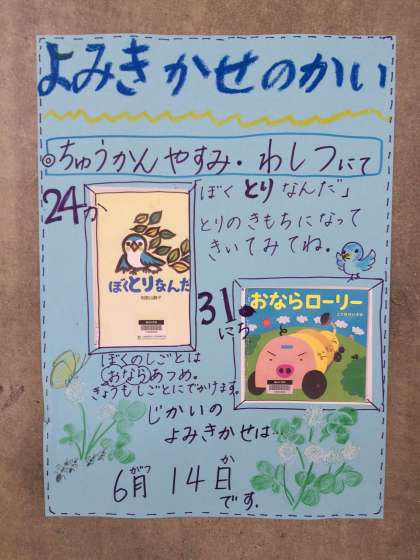 よみきかせのかい
◎ちゅうかんやすみ・わしつにて
24か
「ぼくとりなんだ」
とりのきもちになって
きいてみてね。
ぼくとりなんだ
31
にち
おならローリー
ぼくのしごとは
おならあつめ。
きょうもしごとにでかけます。
じかいの
よみきかせは…
6月 14日
がつ か
です。